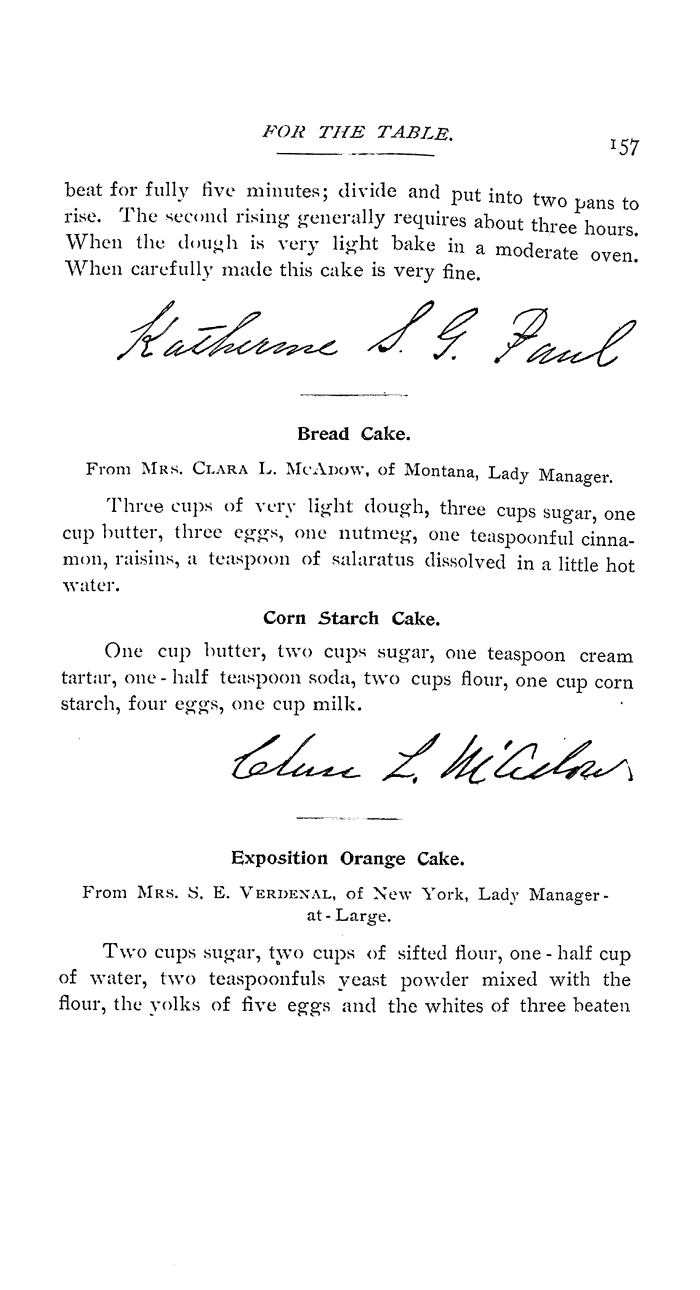 FOR THE TABLE.
157
beat for fully five minutes; divide and put into two pans to
rise. The second rising generally requires about three hours.
When the dough is very light bake in a moderate oven.
When carefully made this cake is very fine.
Katherine S. G. Paul
Bread Cake.
From MRS. CLARA L. MCADOW, of Montana, Lady Manager.
Three cups of very light dough, three cups sugar, one
cup butter, three eggs, one nutmeg, one teaspoonful cinna-
mon, raisins, a teaspoon of salaratus dissolved in a little hot
water.
Corn Starch Cake.
One cup butter, two cups sugar, one teaspoon cream
tartar, one-half teaspoon soda, two cups flour, one cup corn
starch, four eggs, one cup milk.
Clara L. McAdow
Exposition Orange Cake.
From MRS. S. E. VERDENAL, of New York, Lady Manager-
at-Large.
Two cups sugar, two cups of sifted flour, one-half cup
of water, two teaspoonfuls yeast powder mixed with the
flour, the yolks of five eggs and the whites of three beaten